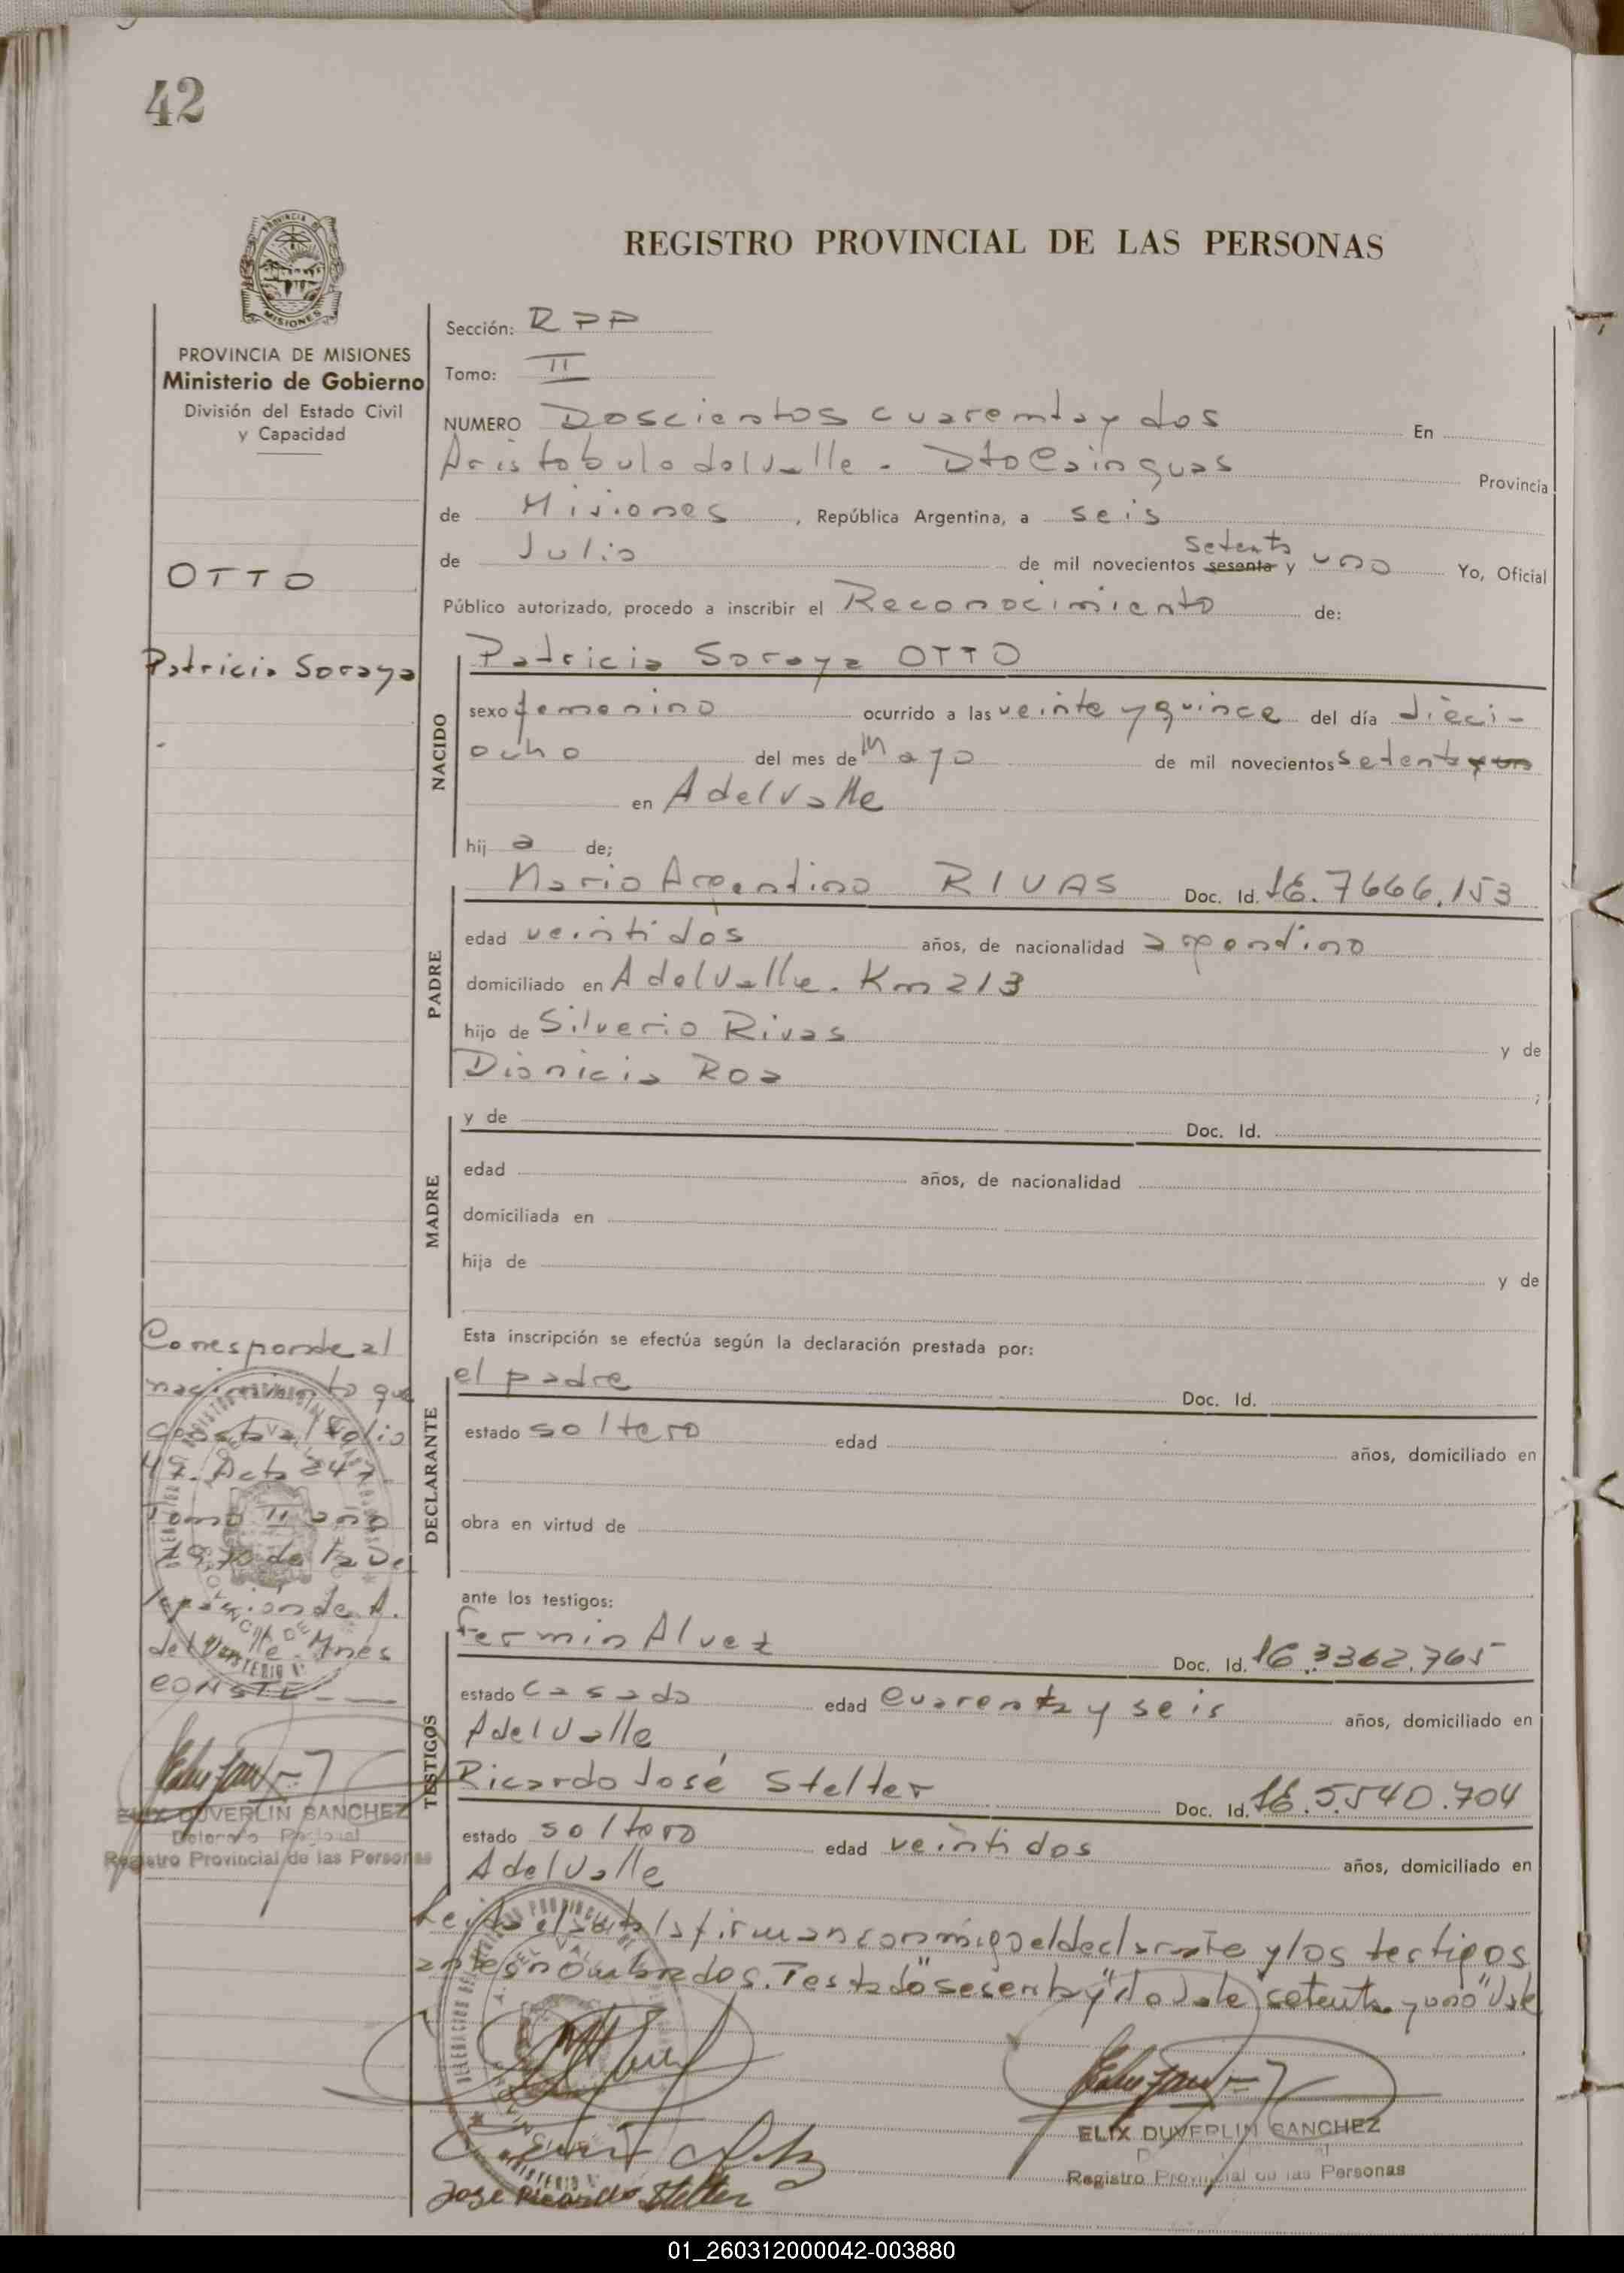 42
REGISTRO PROVINCIAL DE LAS PERSONAS
PROVINCIA DE MISIONES
Ministerio de Gobierno
División del Estado Civil
y Capacidad
OTTO
Patricia Soraya
Sección: RPP
Tomo: II
NUMERO Doscientos cuarenta y dos En
Aristobulo del Valle. Dto Cainguas Provincia
de Misiones, República Argentina, a seis
setenta
de Julio de mil novecientos sesenta y uno Yo, Oficial
Público autorizado, procedo a inscribir el Reconocimiento de:
NACIDO
Patricia Soraya OTTO
sexo femenino ocurrido a las veinte y quince del día dieci-
ocho del mes de Mayo de mil novecientos setenta y un
en A del Valle
hij a de;
PADRE
Mario Argentino RIVAS Doc. Id. 16.7666.153
edad veintidos años, de nacionalidad argentino
domiciliado en A del Valle. Km 213
hijo de Silverio Rivas y de
Dionicia Roa ;
MADRE
y de Doc. Id.
edad años, de nacionalidad
domiciliada en
hija de y de
Esta inscripción se efectúa según la declaración prestada por:
DECLARANTE
el padre Doc. Id.
estado soltero edad años, domiciliado en
obra en virtud de
ante los testigos:
TESTIGOS
Fermin Alvez Doc. Id. 16.3362.765
estado casado edad cuarenta y seis años, domiciliado en
A del Valle
Ricardo José Stelter Doc. Id. 16.5.540.704
estado soltero edad veintidos años, domiciliado en
A del Valle
Leida el acta la firman conmigo el declarante y los testigos
antes nombrados. Testado "sesenta y" No Vale "setenta y uno" Vale
Corresponde al
nacimiento que
consta al Folio
47. Acta 247.
Tomo II año
1970 de la De
legación de A.
del Valle. Mnes
CONSTE.-
ELIX DUVERLIN SANCHEZ
Registro Provincial de las Personas
ELIX DUVERLIN SANCHEZ
Registro Provincial de las Personas
José Ricardo Stelter
01_260312000042-003880